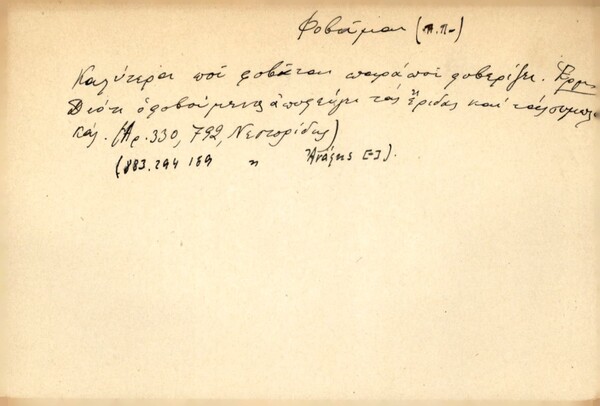 Φοβᾶμαι (Π.Π.)
Καλύτερα ποῦ φοβᾶται παρά ποῦ φοβερίζει. Ἑρμ.
Διότι ὁ φοβούμενος ἀποφεύγει τάς ἔριδας καί τάς συμπλο
κάς. (Ἀρ. 330, 792, Νεστορίδης)
(883. 294 169 "